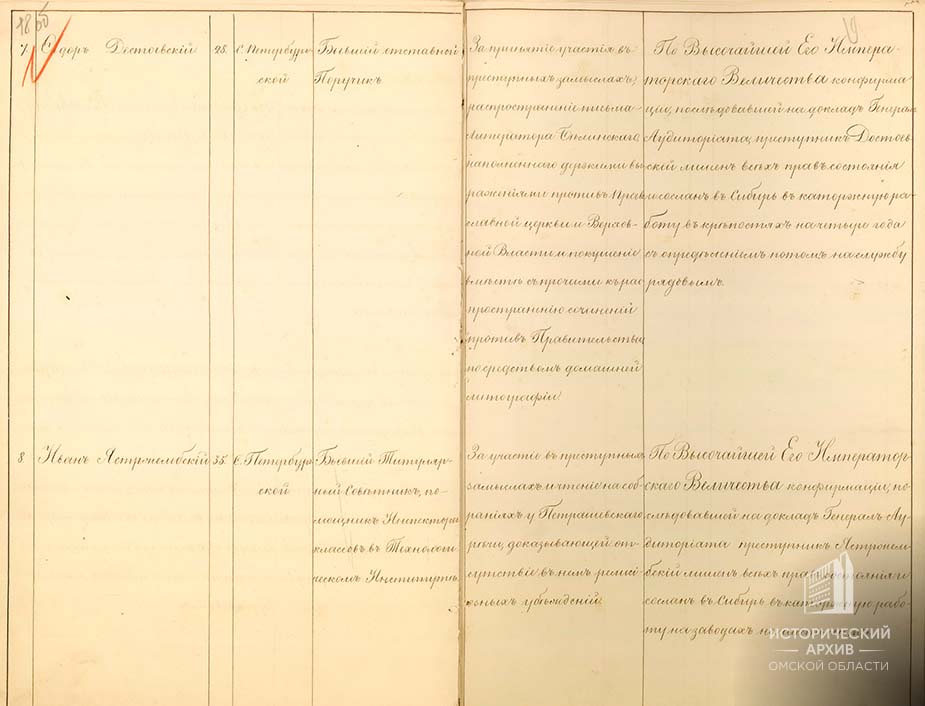 1850
7. Ѳедоръ Достоевскій
28.
С. Петербург-
ской
Бывшій отставной
Поручикъ
За принятіе участія въ
преступныхъ замыслахъ,
распространніе письма
Литератора Бѣлинскаго,
наполненнаго дерзкими вы
раженіями противъ Прав
славной церкви и Верхов-
ной Власти и покушеніе
вмѣстѣ съ прочими къ рас
пространнію сочиненій
противъ Правительства,
посредствомъ домашней
литографіи
По Высочайшей Его Импера-
торскаго Величества конфирма
ціи, послѣдовавшей на докладъ Генералъ
Аудиторіата, преступникъ Достоев-
скій лишенъ всѣхъ правъ состоянія
и сосланъ въ Сибирь въ каторжную ра-
боту въ крѣпостяхъ на четыре года
съ опредѣленіемъ потомъ на службу
рядовымъ.
8
Иванъ Ястржембскій
35.
С. Петербург-
ской
Бывшій Титуляр-
ный Совѣтникъ, по-
мощникъ Инспектора
классовъ въ Технологи-
ческомъ Институтѣ.
За участіе въ преступныхъ
замыслахъ и чтеніе на соб
раніяхъ у Петрашевскаго
рѣчи, доказывающей от-
сутствіе въ немъ религі-
озныхъ убѣжденій
По Высочайшей Его Император-
скаго Величества конфирмаціи, по-
слѣдовавшей на докладъ Генералъ Ау-
диторіата преступникъ Ястржем-
бскій лишенъ всѣхъ правъ состоянія и
сосланъ въ Сибирь въ каторжную рабо-
ту на заводахъ на
ИСТОРИЧЕСКИЙ
АРХИВ
ОМСКОЙ ОБЛАСТИ